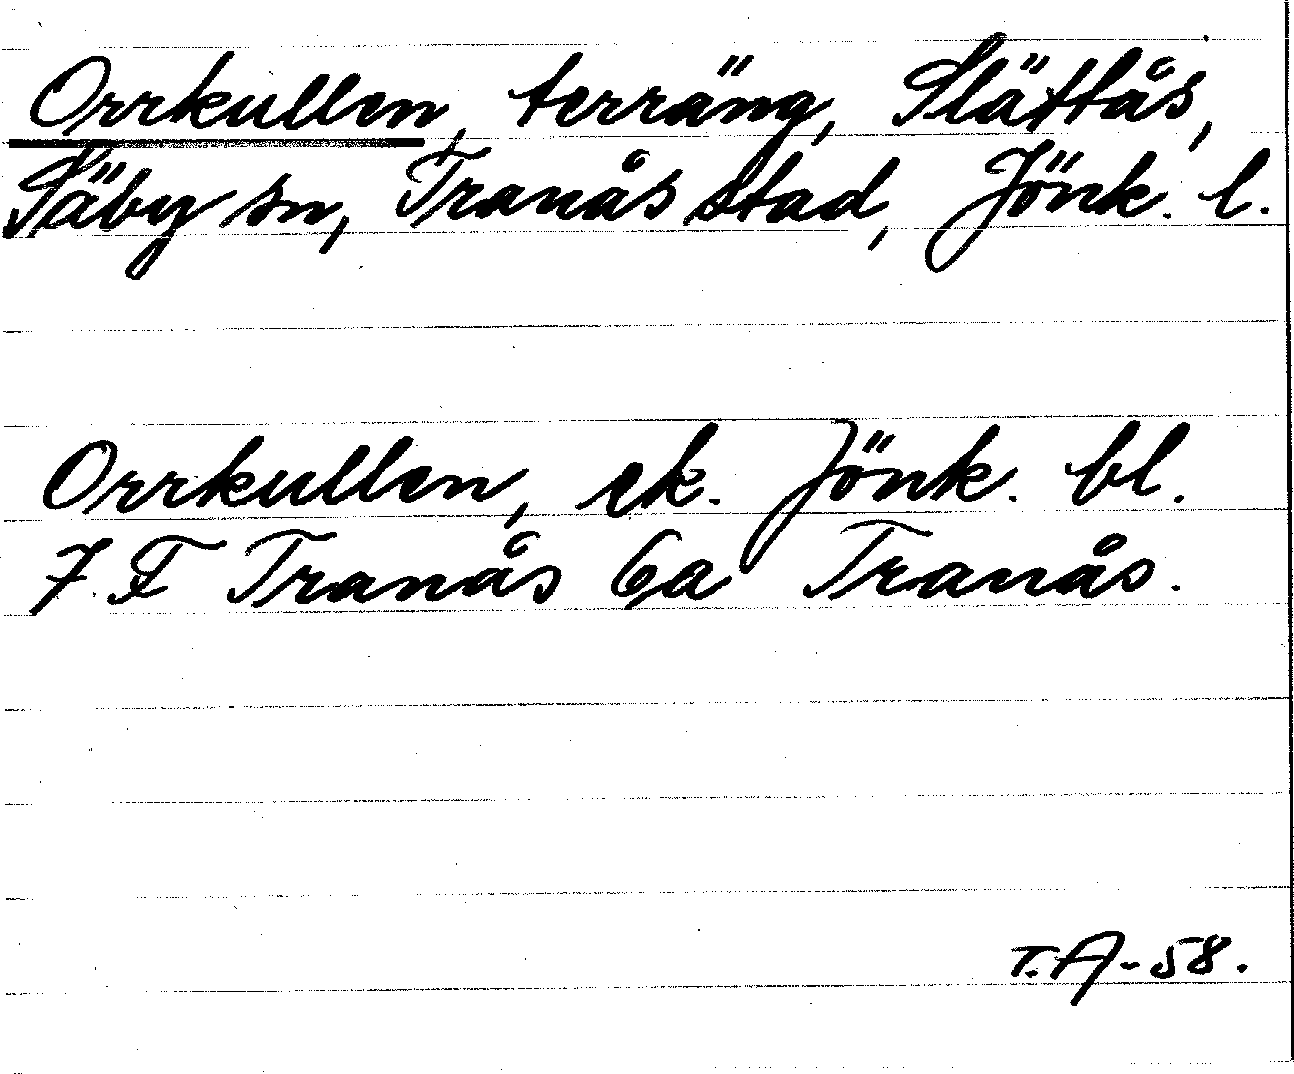 Orrkullen, terräng, Slättås,
Säby sn, Tranås stad, Jönk. l.
Orrkullen, ek. Jönk. bl.
7. F Tranås 6a Tranås.
T.A-58.